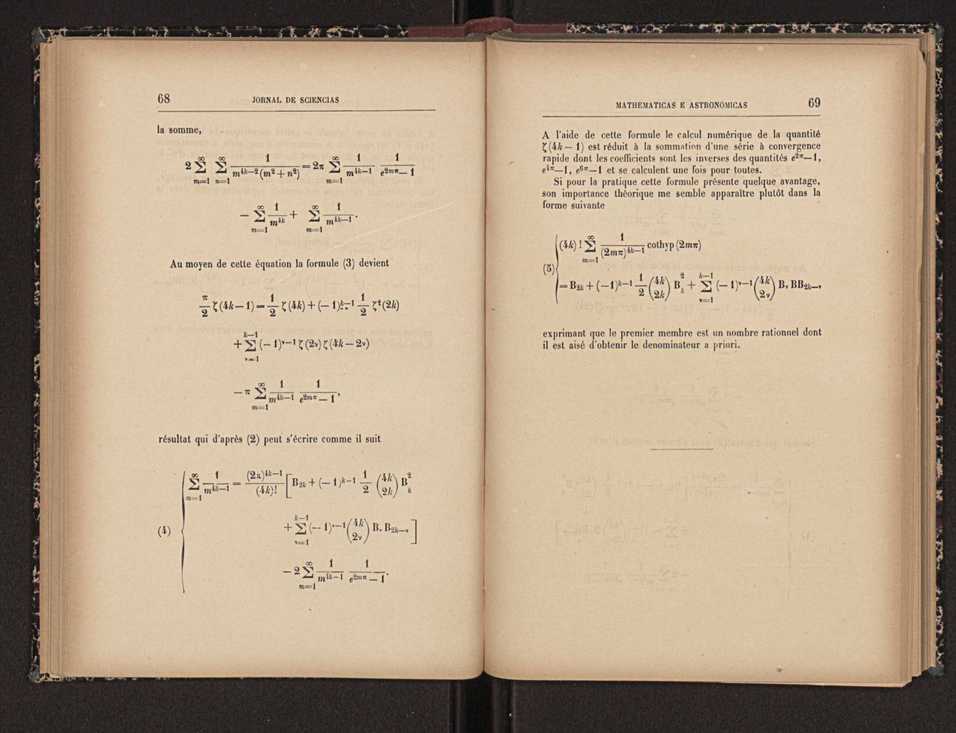 68 JORNAL DE SCIENCIAS
la somme,
2 ∑_{m=1}^{∞} ∑_{n=1}^{∞} 1/(m^{4k−2}(m²+n²)) = 2π ∑_{m=1}^{∞} 1/m^{4k−1} 1/(e^{2mπ}−1)
− ∑_{m=1}^{∞} 1/m^{4k} + ∑_{m=1}^{∞} 1/m^{4k−1}.
Au moyen de cette équation la formule (3) devient
π/2 ζ(4k−1) = 1/2 ζ(4k) + (−1)^{k−1} 1/2 ζ²(2k)
+ ∑_{ν=1}^{k−1} (−1)^{ν−1} ζ(2ν) ζ(4k−2ν)
− π ∑_{m=1}^{∞} 1/m^{4k−1} 1/(e^{2mπ}−1),
résultat qui d'après (2) peut s'écrire comme il suit
(4) { ∑_{m=1}^{∞} 1/m^{4k−1} = (2π)^{4k−1}/(4k)! [ B_{2k} + (−1)^{k−1} 1/2 (4k 2k) B_k^2
+ ∑_{ν=1}^{k−1} (−1)^{ν−1} (4k 2ν) B_ν B_{2k−ν} ]
− 2 ∑_{m=1}^{∞} 1/m^{4k−1} 1/(e^{2mπ}−1).
MATHEMATICAS E ASTRONOMICAS 69
A l'aide de cette formule le calcul numérique de la quantité
ζ(4k−1) est réduit à la sommation d'une série à convergence
rapide dont les coefficients sont les inverses des quantités e^{2π}−1,
e^{4π}−1, e^{6π}−1 et se calculent une fois pour toutes.
Si pour la pratique cette formule présente quelque avantage,
son importance théorique me semble apparaître plutôt dans la
forme suivante
(5) { (4k)! ∑_{m=1}^{∞} 1/(2mπ)^{4k−1} cothyp (2mπ)
= B_{2k} + (−1)^{k−1} 1/2 (4k 2k) B_k^2 + ∑_{ν=1}^{k−1} (−1)^{ν−1} (4k 2ν) B_ν BB_{2k−ν}
exprimant que le premier membre est un nombre rationnel dont
il est aisé d'obtenir le denominateur a priori.